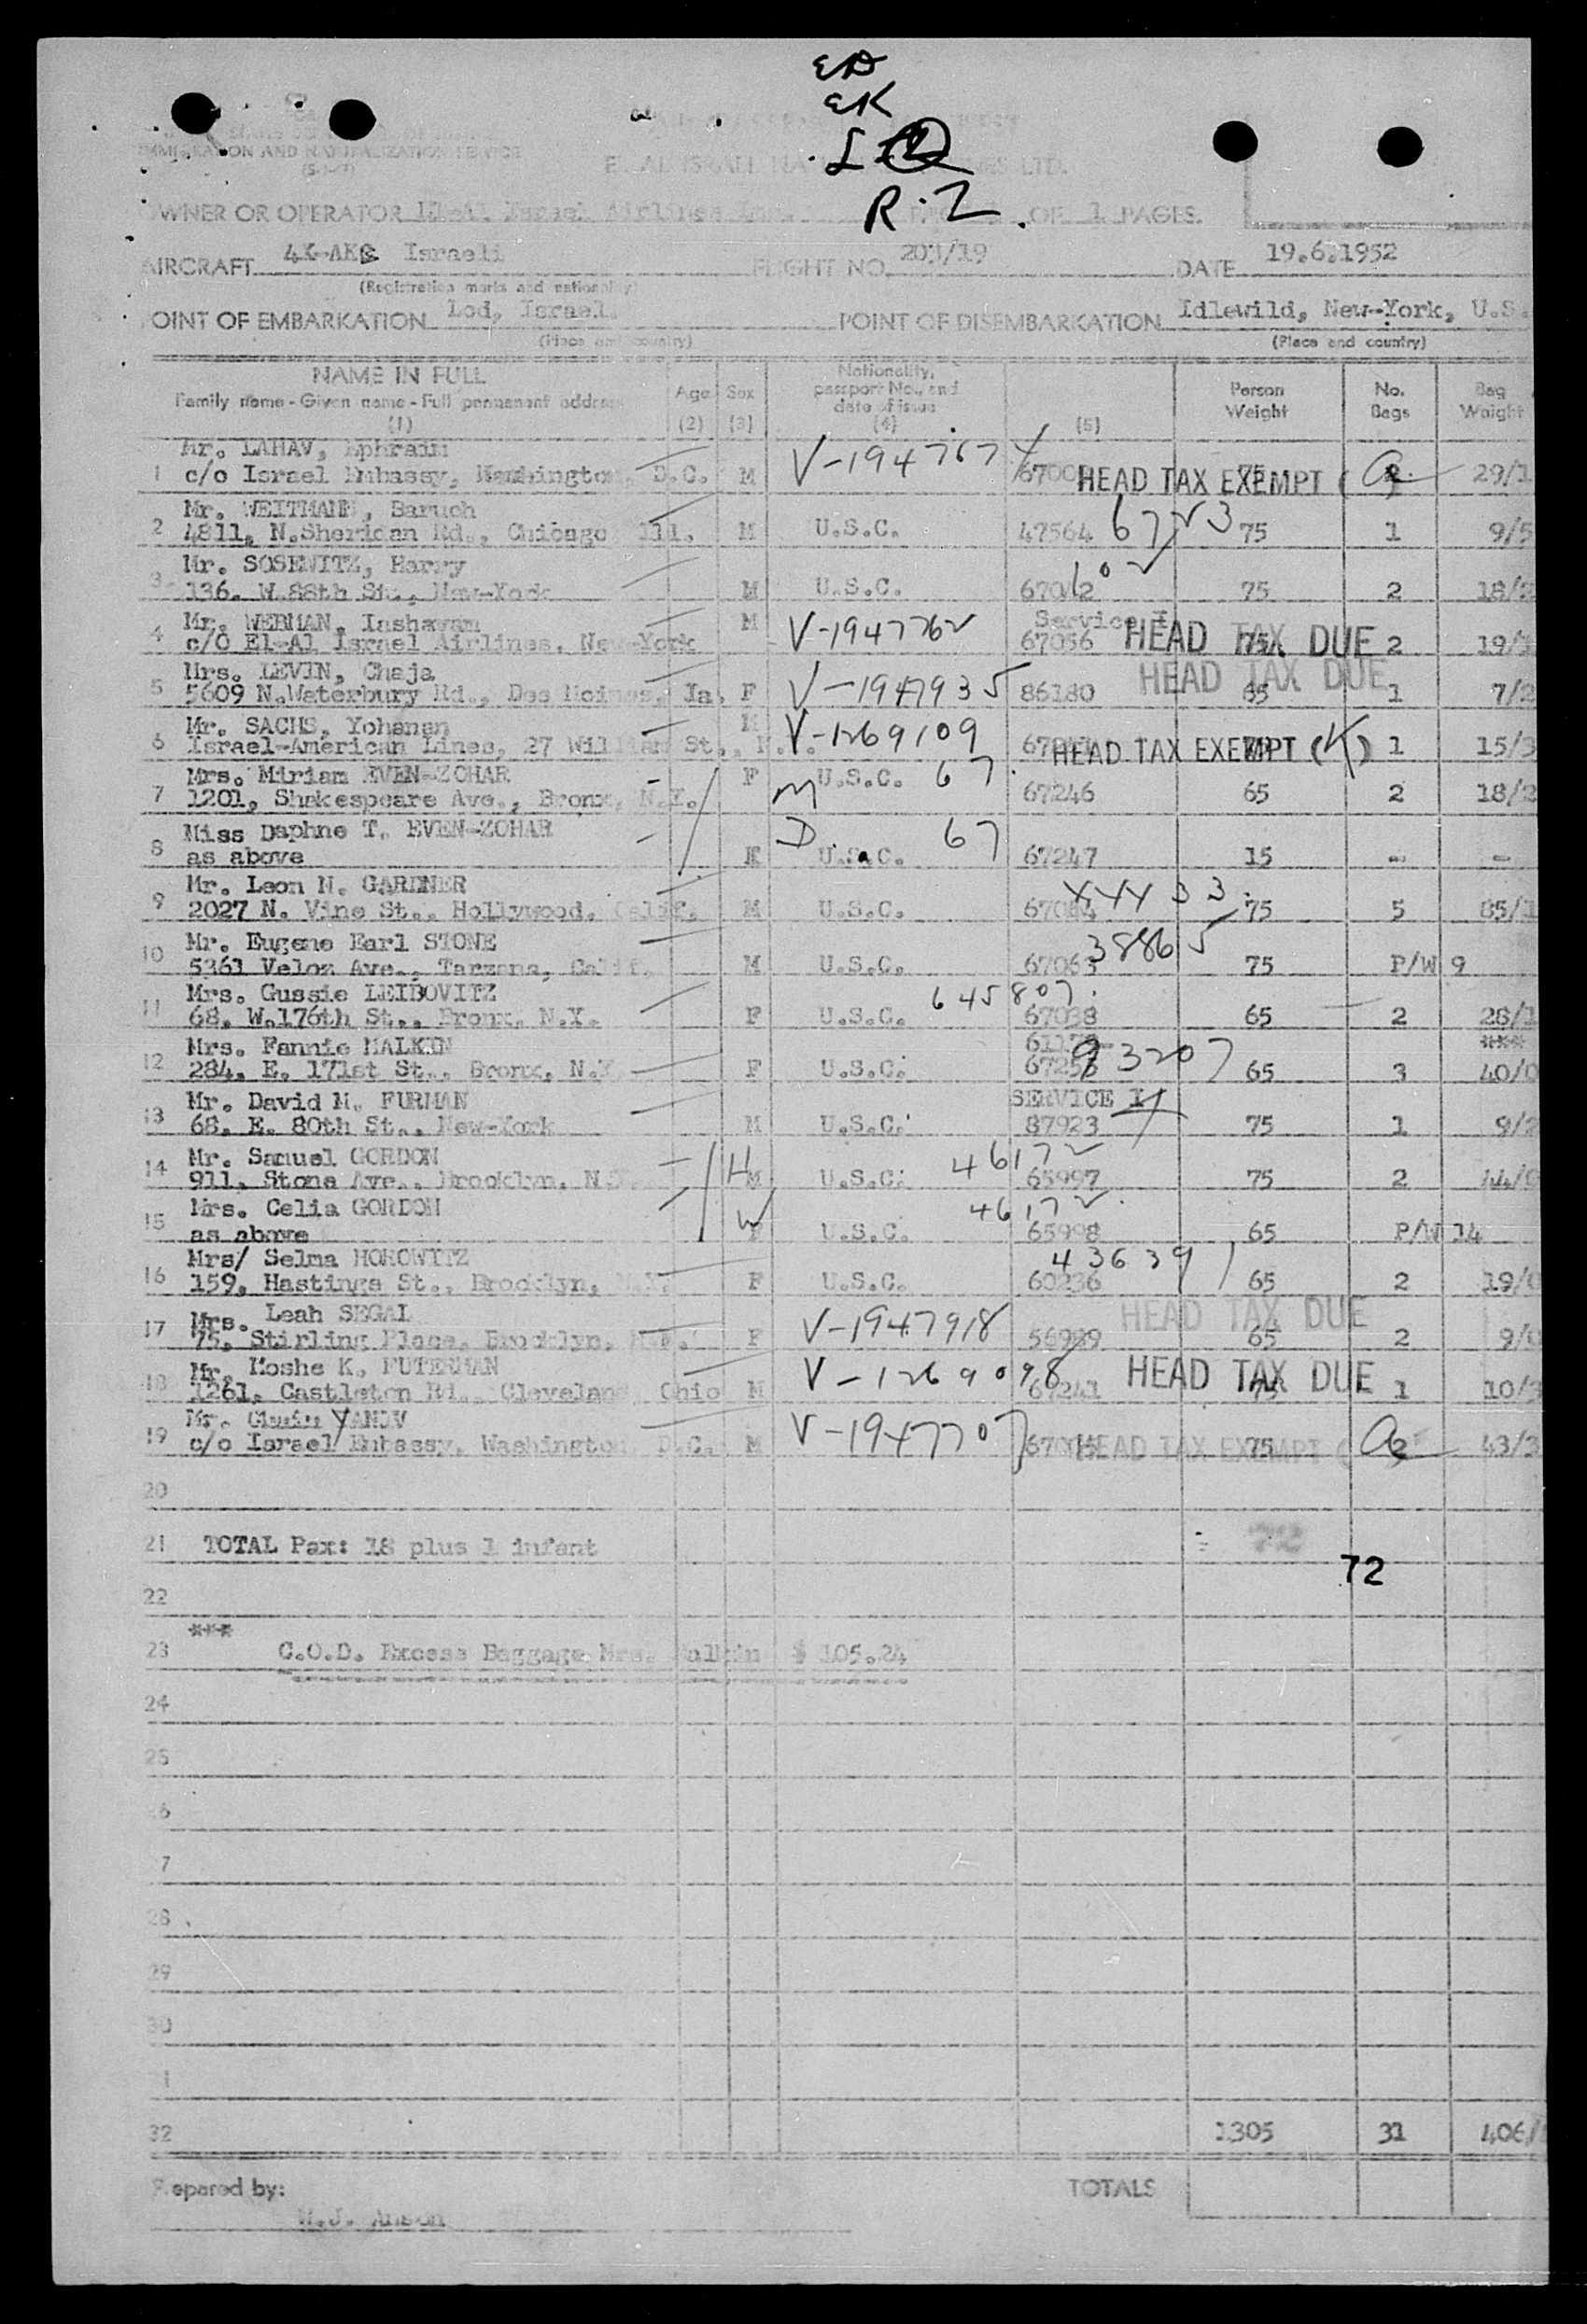 ED
EK
R.Z
IMMIGRATION AND NATURALIZATION SERVICE
OWNER OR OPERATOR El-Al Israel Airlines OF 1 PAGES.
AIRCRAFT Israeli FLIGHT NO. DATE 19.6.1952
(Registration marks and nationality)
POINT OF EMBARKATION Lod, Israel. POINT OF DISEMBARKATION Idlewild, New-York, U.S.
(Place and country) (Place and country)
NAME IN FULL Age Sex Nationality, passport No., and date of issue Person Weight No. Bags Bag Weight
Family name - Given name - Full permanent address
(1) (2) (3) (4) (5)
Mr. LAHAV, Ephraim
1 c/o Israel Embassy, Washington, D.C. M V-1947674 HEAD TAX EXEMPT ( 75 29/1
Mr. WEITMANN, Baruch
2 4811, N.Sheridan Rd., Chicago Ill. M U.S.C. 47564 75 1 9/5
Mr. SOSEWITZ, Harry
3 136, W.88th St., New-York M U.S.C. 75 2 18/2
Mr. WEBMAN,
4 c/o El-Al Israel Airlines, New-York M V-1947762 Service I 67056 HEAD TAX DUE 75 2 19/
Mrs. LEVIN, Chaja
5 5609 N.Waterbury Rd., Des Moines, Ia. F V-1947935 86180 HEAD TAX DUE 1 7/2
Mr. SACHS, Yohanan
6 Israel-American Lines, 27 William St., M V-1269109 HEAD TAX EXEMPT (K) 1 15/3
Mrs. Miriam EVEN-ZOHAR
7 1201, Shakespeare Ave., Bronx, N.Y. F M U.S.C. 67 67246 65 2 18/2
Miss Daphne T. EVEN-ZOHAR
8 as above D U.S.C. 67 67247 15 - -
Mr. Leon N. GARDNER
9 2027 N. Vine St., Hollywood, Calif. M U.S.C. 75 5 85/1
Mr. Eugene Earl STONE
10 5361 Veloz Ave., Tarzana, Calif. M U.S.C. 67063 38865 75 P/W 9
Mrs. Gussie LEIBOVITZ
11 68, W.176th St., Bronx, N.Y. F U.S.C. 645807 67038 65 2 28/1
Mrs. Fannie MALKIN ***
12 284, E. 171st St., Bronx, N.Y. F U.S.C. 93207 65 3 40/0
Mr. David M. FURMAN SERVICE I
13 68, E. 80th St., New-York M U.S.C. 87923 75 1 9/2
Mr. Samuel GORDON
14 911, Stone Ave., Brooklyn, N.Y. H M U.S.C. 46172 65997 75 2 44/0
Mrs. Celia GORDON
15 as above W F U.S.C. 46172 65998 65 P/W 14
Mrs/ Selma HOROWITZ
16 159, Hastings St., Brooklyn, N.Y. F U.S.C. 436391 60236 65 2 19/0
Mrs. Leah SEGAL
17 75, Stirling Place, Brooklyn, N.Y. F V-1947918 56989 HEAD TAX DUE 65 2 9/0
Mr. Moshe K. FUTERMAN
18 1261, Castleton Rd., Cleveland Ohio M V-1269098 67241 HEAD TAX DUE 75 1 10/3
Mr. Chaim YANIV
19 c/o Israel Embassy, Washington D.C. M V-1947707 HEAD TAX EXEMPT ( 75 2 43/3
20
21 TOTAL Pax: 18 plus 1 infant
72
22
***
23 C.O.D. Excess Baggage Mrs. Malkin $ 105.24
24
25
26
27
28
29
30
31
32 1305 31 406/
Prepared by: TOTALS